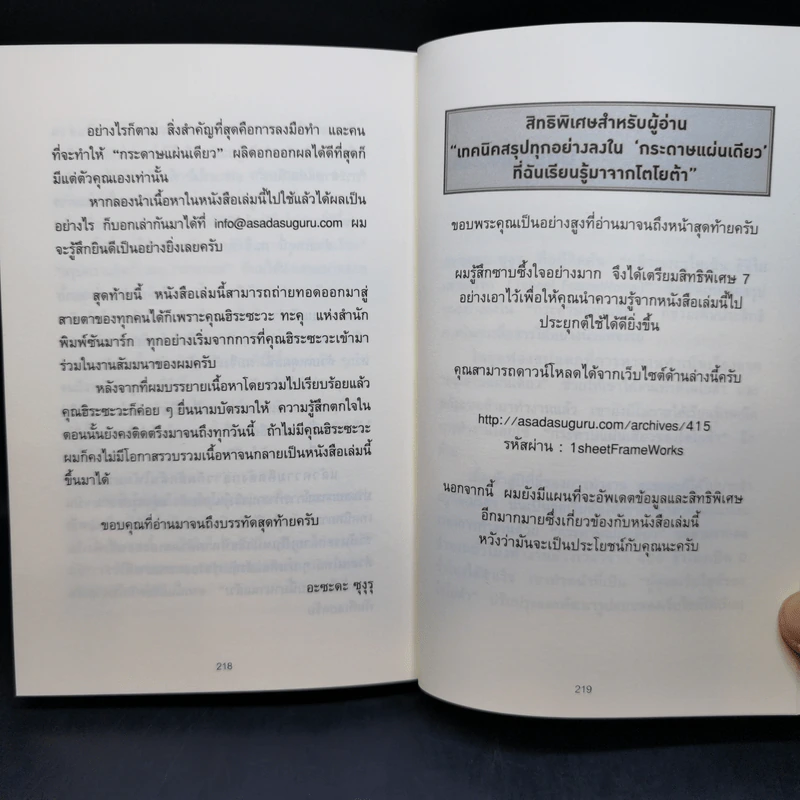 อย่างไรก็ตาม สิ่งสำคัญที่สุดคือการลงมือทำ และคน
ที่จะทำให้ “กระดาษแผ่นเดียว” ผลิดอกออกผลได้ดีที่สุดก็
มีแต่ตัวคุณเองเท่านั้น
หากลองนำเนื้อหาในหนังสือเล่มนี้ไปใช้แล้วได้ผลเป็น
อย่างไร ก็บอกเล่ากันมาได้ที่ info@asadasuguru.com ผม
จะรู้สึกยินดีเป็นอย่างยิ่งเลยครับ
สุดท้ายนี้ หนังสือเล่มนี้สามารถถ่ายทอดออกมาสู่
สายตาของทุกคนได้ก็เพราะคุณฮิระซะวะ ทะคุ แห่งสำนัก
พิมพ์ซันมาร์ก ทุกอย่างเริ่มจากการที่คุณฮิระซะวะเข้ามา
ร่วมในงานสัมมนาของผมครับ
หลังจากที่ผมบรรยายเนื้อหาโดยรวมไปเรียบร้อยแล้ว
คุณฮิระซะวะก็ค่อย ๆ ยื่นนามบัตรมาให้ ความรู้สึกตกใจใน
ตอนนั้นยังคงติดตรึงมาจนถึงทุกวันนี้ ถ้าไม่มีคุณฮิระซะวะ
ผมก็คงไม่มีโอกาสรวบรวมเนื้อหาจนกลายเป็นหนังสือเล่มนี้
ขึ้นมาได้
ขอบคุณที่อ่านมาจนถึงบรรทัดสุดท้ายครับ
อะซะดะ ซุงุรุ
218
สิทธิพิเศษสำหรับผู้อ่าน
“เทคนิคสรุปทุกอย่างลงใน ‘กระดาษแผ่นเดียว’
ที่ฉันเรียนรู้มาจากโตโยต้า”
ขอบพระคุณเป็นอย่างสูงที่อ่านมาจนถึงหน้าสุดท้ายครับ
ผมรู้สึกซาบซึ้งใจอย่างมาก จึงได้เตรียมสิทธิพิเศษ 7
อย่างเอาไว้เพื่อให้คุณนำความรู้จากหนังสือเล่มนี้ไป
ประยุกต์ใช้ได้ดียิ่งขึ้น
คุณสามารถดาวน์โหลดได้จากเว็บไซต์ด้านล่างนี้ครับ
http://asadasuguru.com/archives/415
รหัสผ่าน : 1sheetFrameWorks
นอกจากนี้ ผมยังมีแผนที่จะอัพเดตข้อมูลและสิทธิพิเศษ
อีกมากมายซึ่งเกี่ยวข้องกับหนังสือเล่มนี้
หวังว่ามันจะเป็นประโยชน์กับคุณนะครับ
219